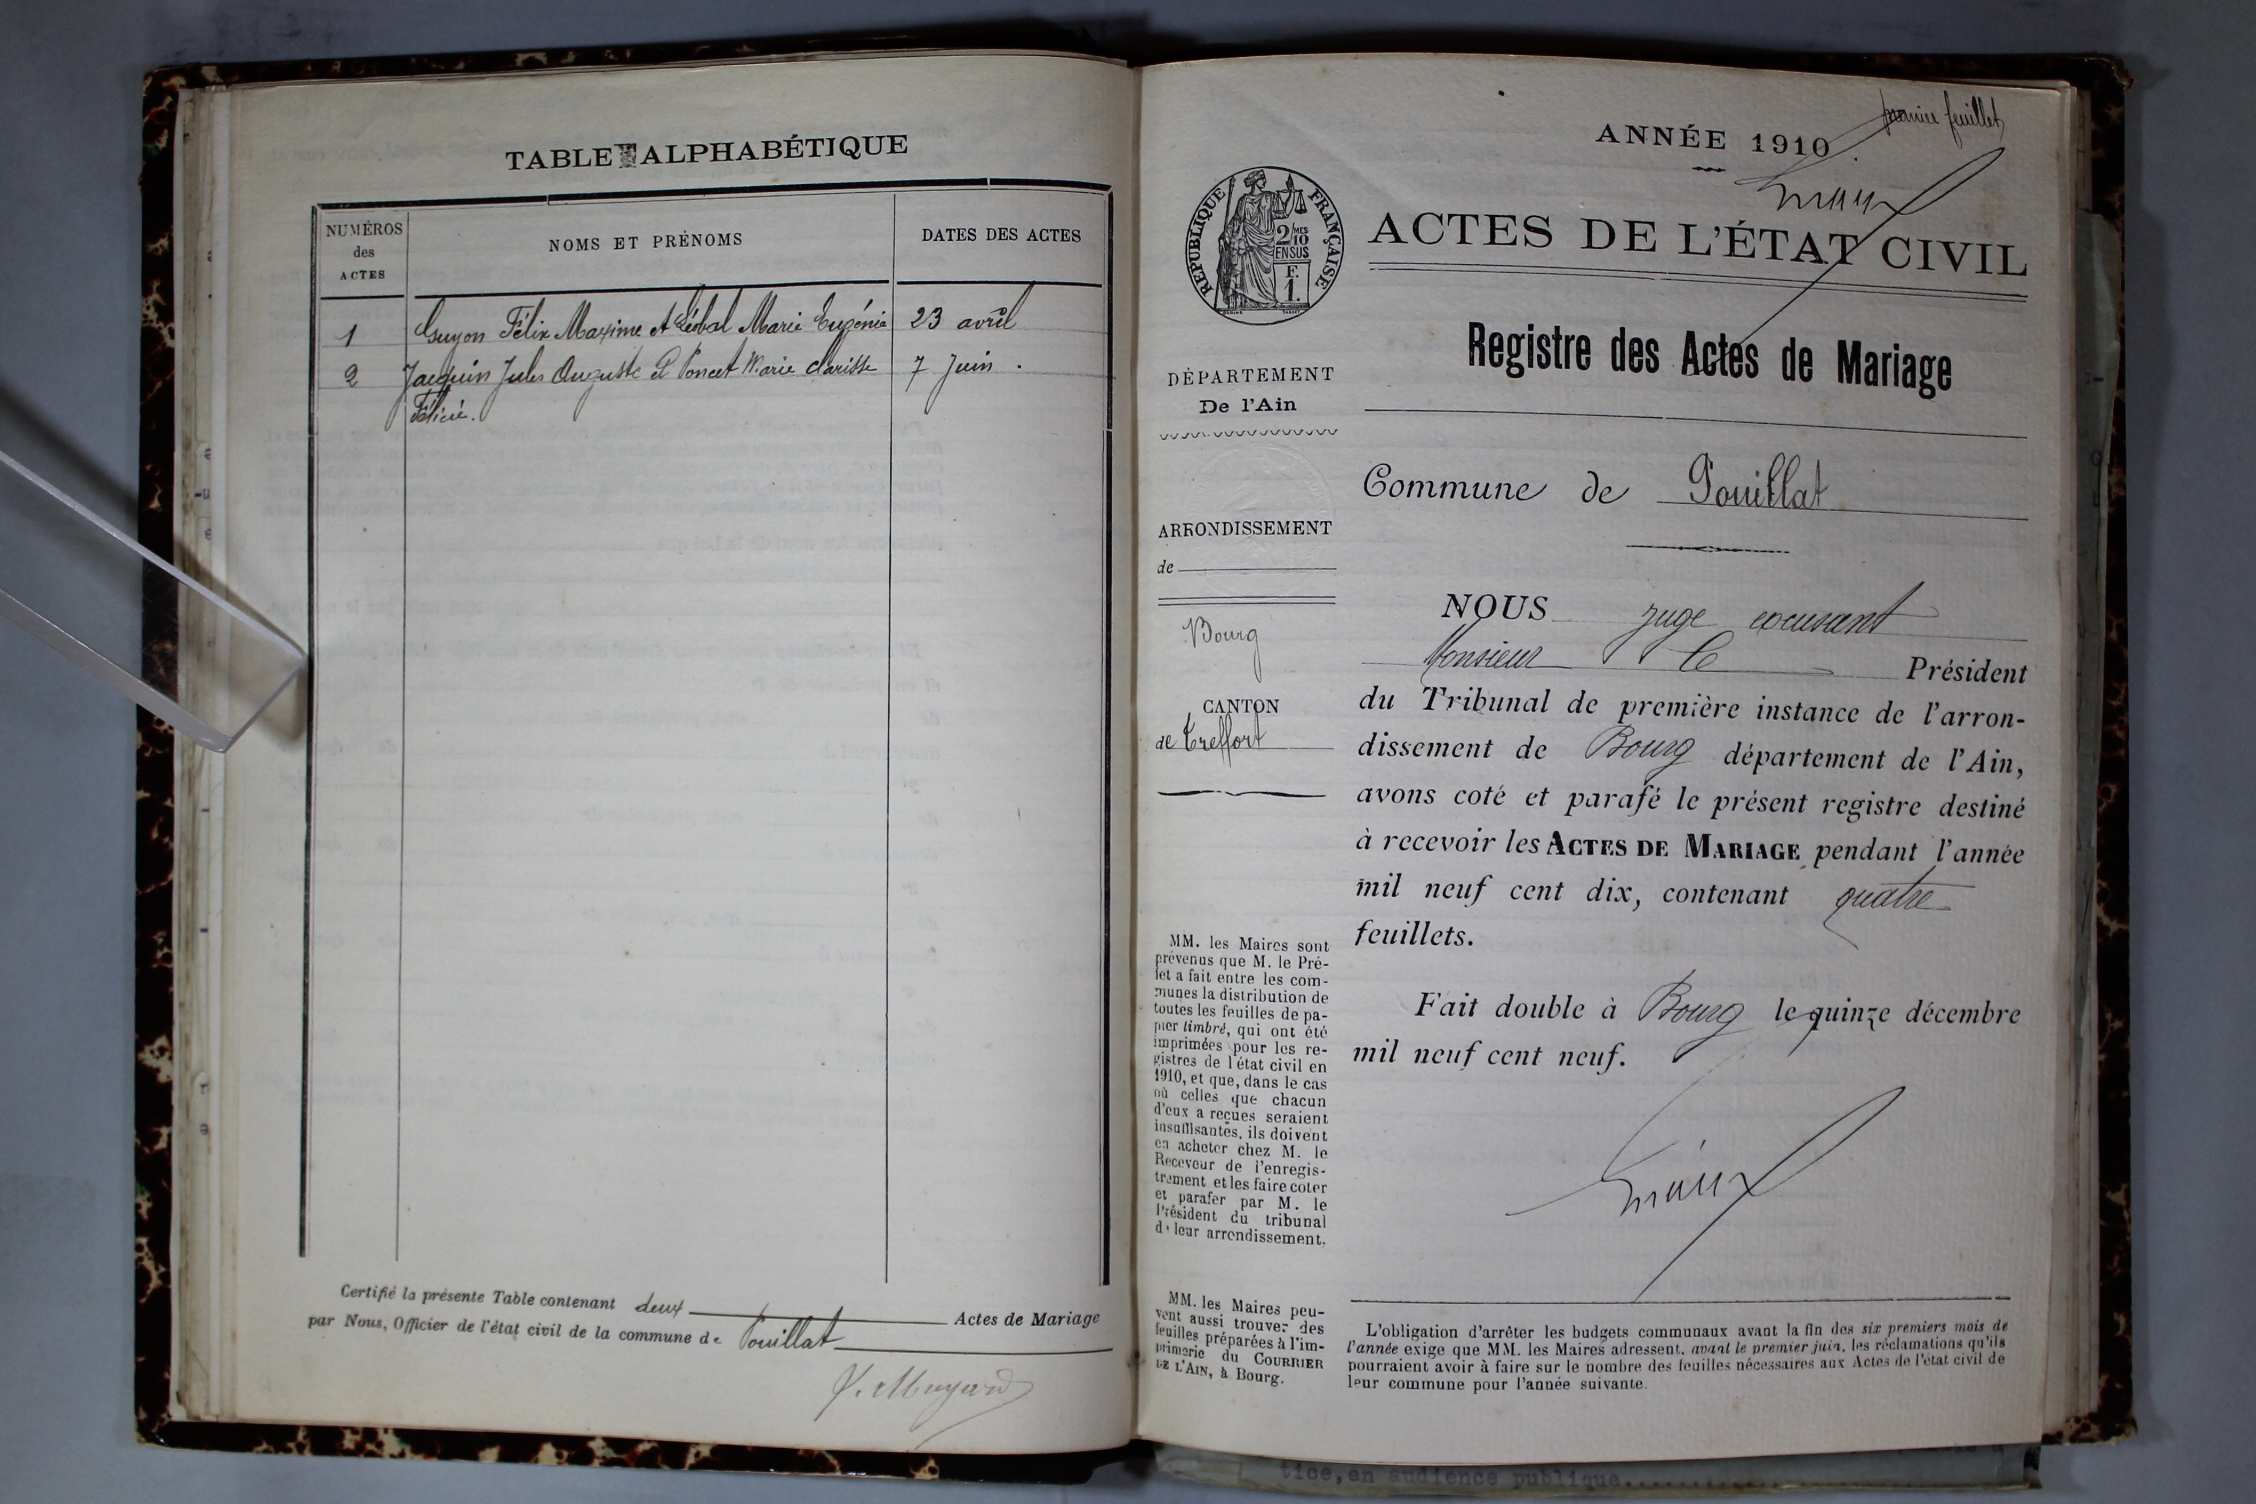 TABLE ALPHABÉTIQUE
NUMÉROS
des
ACTES
NOMS ET PRÉNOMS
DATES DES ACTES
1 Guyon Félix Maxime et Marie Eugénie 23 avril
2 Jacquin Jules Auguste et Poncet Marie Clarisse 7 Juin .
Félicie.
Certifié la présente Table contenant deux Actes de Mariage
par Nous, Officier de l'état civil de la commune de Pouillat
premier feuillet
ANNÉE 1910
RÉPUBLIQUE FRANÇAISE
2/10 MES
EN SUS
F.
1.
ACTES DE L'ÉTAT CIVIL
Registre des Actes de Mariage
DÉPARTEMENT
De l'Ain
ARRONDISSEMENT
de
Bourg
CANTON
de Treffort
MM. les Maires sont
prévenus que M. le Pré-
fet a fait entre les com-
munes la distribution de
toutes les feuilles de pa-
pier timbré, qui ont été
imprimées pour les re-
gistres de l'état civil en
1910, et que, dans le cas
où celles que chacun
d'eux a reçues seraient
insuffisantes, ils doivent
en acheter chez M. le
Receveur de l'enregis-
trement et les faire coter
et parafer par M. le
Président du tribunal
de leur arrondissement.
MM. les Maires peu-
vent aussi trouver des
feuilles préparées à l'im-
primerie du COURRIER
DE L'AIN, à Bourg.
Commune de Pouillat
NOUS juge
Monsieur le Président
du Tribunal de première instance de l'arron-
dissement de Bourg département de l'Ain,
avons coté et parafé le présent registre destiné
à recevoir les ACTES DE MARIAGE pendant l'année
mil neuf cent dix, contenant quatre
feuillets.
Fait double à Bourg le quinze décembre
mil neuf cent neuf.
L'obligation d'arrêter les budgets communaux avant la fin des six premiers mois de
l'année exige que MM. les Maires adressent, avant le premier juin, les réclamations qu'ils
pourraient avoir à faire sur le nombre des feuilles nécessaires aux Actes de l'état civil de
leur commune pour l'année suivante.
tice,en audience publique.......